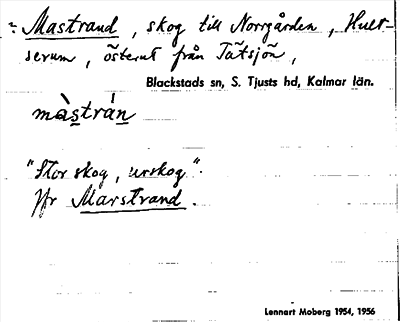 = Mastrand, skog till Norrgården, Hult-
serum, österut från Tåtsjön,
Blackstads sn, S. Tjusts hd, Kalmar län.
màstrán
"Stor skog, urskog".
Jfr Marstrand.
Lennart Moberg 1954, 1956